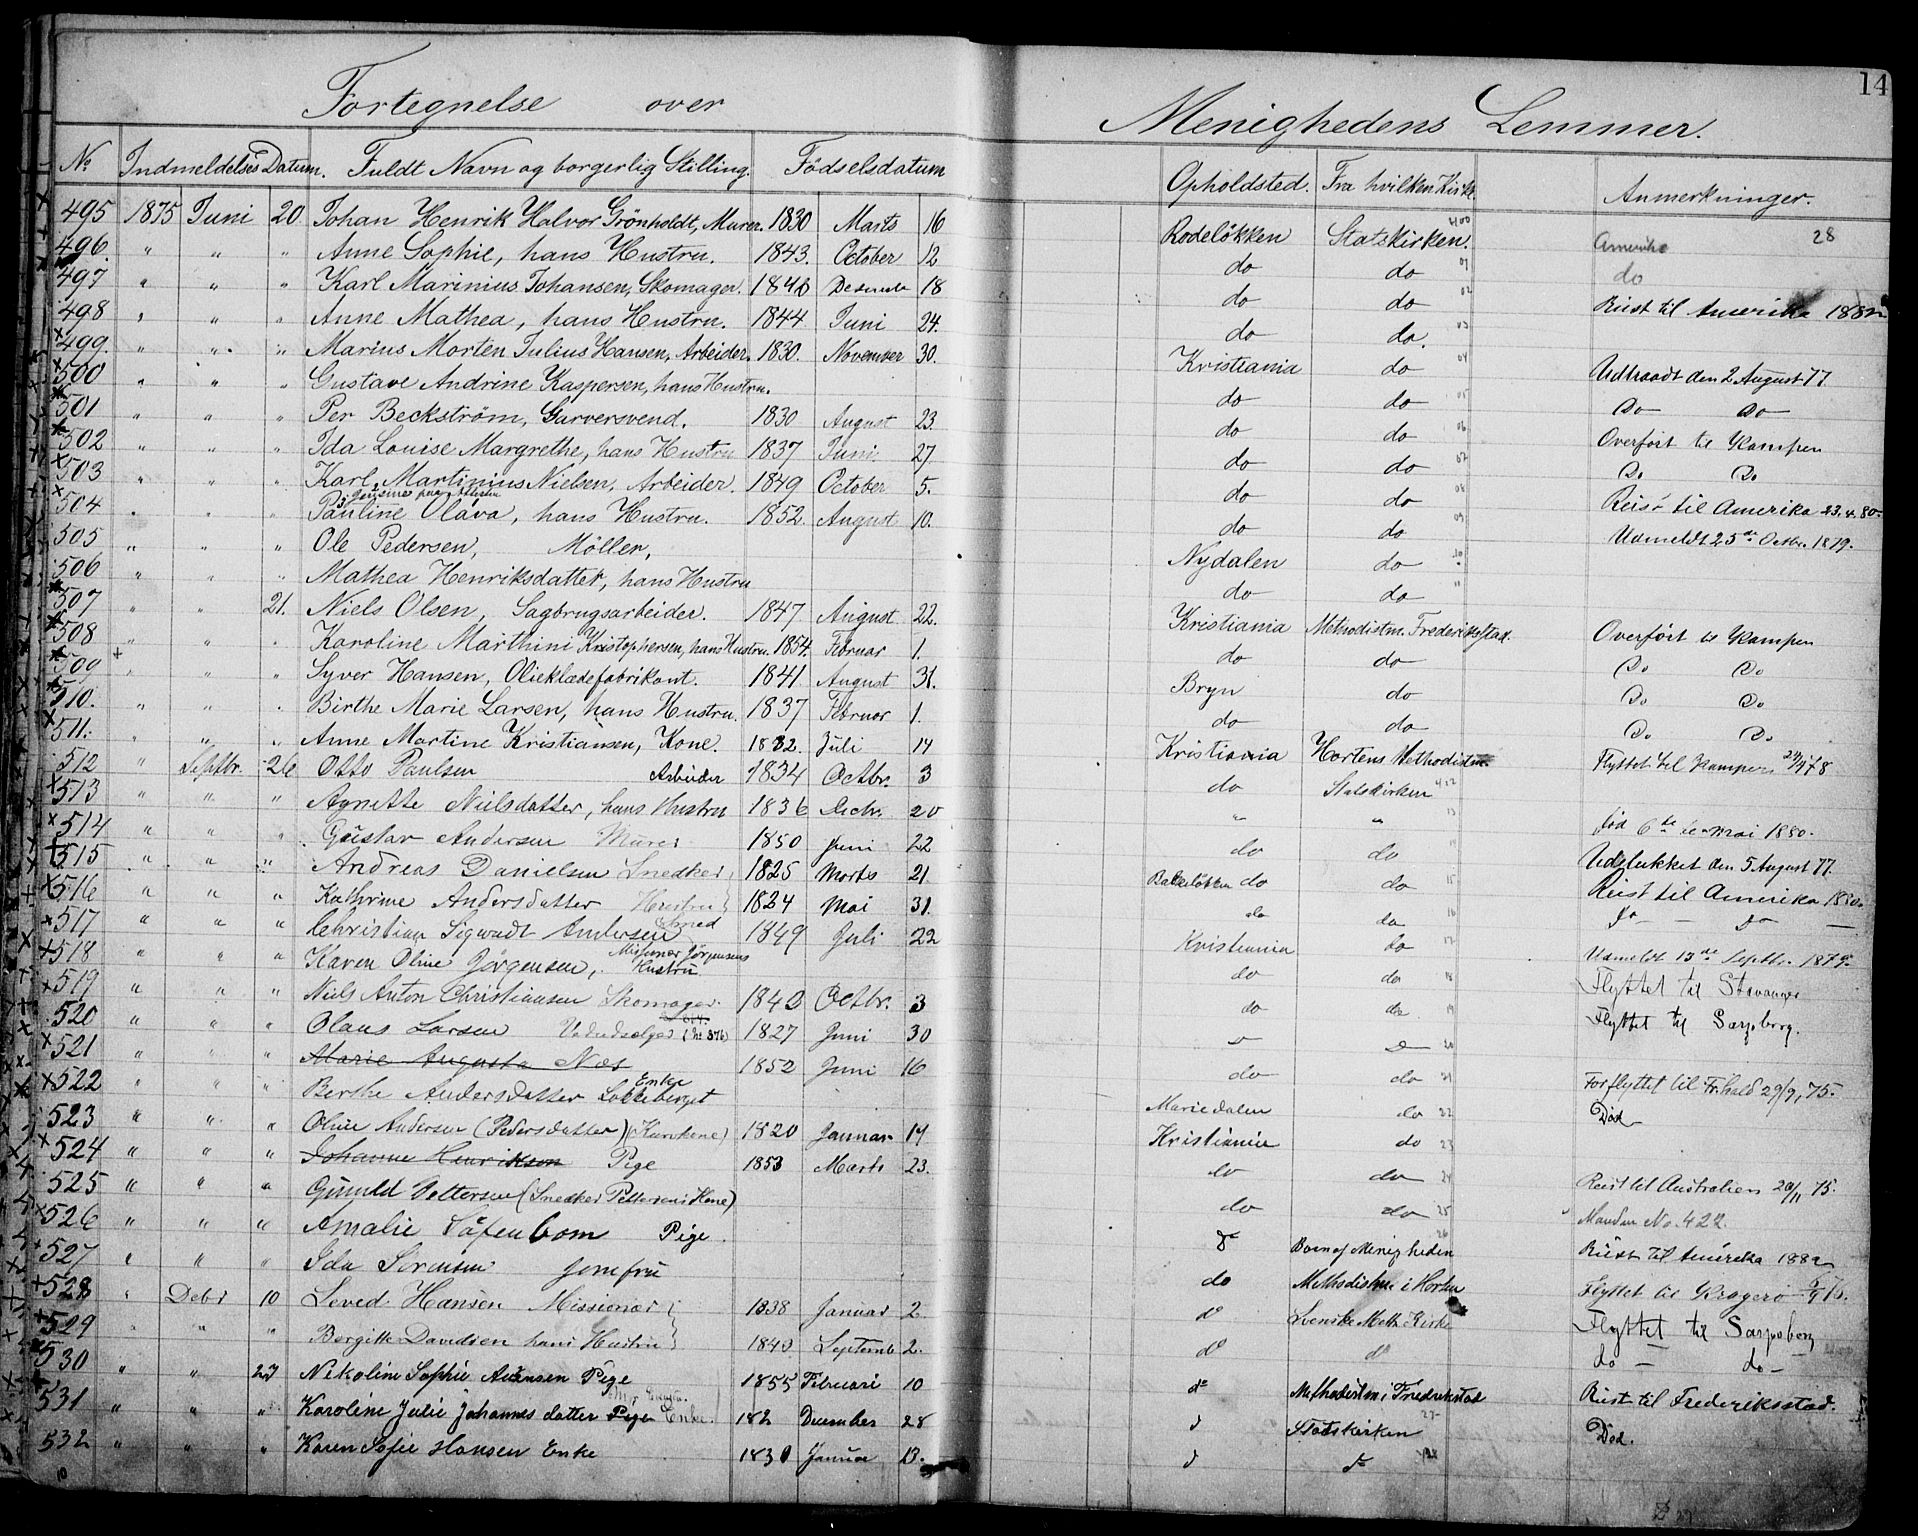 Fortegnelse over Menighedens Lemmer.
14
No Indmeldelses Datum. Fuldt Navn og borgerlig Stilling. Födselsdatum Opholdsted. Fra hvilken Kirke. Anmerkninger.
495 1875 Juni 20. Johan Henrik Halvor Grönholdt, Murer. 1830 Marts 16 Rodelökken Statskirken. 400 Amerika 28
496. " " " Anne Sophie, hans Hustru. 1843. October 12 do do 01 do
497 " " " Karl Marinius Johansen, Skomager. 1848 Desembr 18 do do 02 Reist til Amerika 1882
498 " " " Anne Mathea, hans Hustru. 1844 Juni 24. do do. 03
499. " " " Marius Morten Julius Hansen, Arbeider. 1830. November 30. Kristiania do 04 Udtraadt den 2 August 77
500 " " " Gustave Andrine Kaspersen, hans Hustru. do do 05 Do Do
501 " " " Per Beckström, Garversvend. 1830 August 23. do do 06 Overfört til Kampen
502 " " " Ida Louise Margrethe, hans Hustru 1837 Juni 27. do do 07 Do Do
503 " " " Karl Martinius Nielsen, Arbeider. 1849 October 5. do do 08 Reist til Amerika 23.4.80.
504 " " " Pauline Olava, hans Hustru. 1852. August 10. do do 09 Udmeldt 25de Octbr. 1879.
505 " " " Ole Pedersen, Möller, Nydalen do 10
506 " " " Mathea Henriksdatter, hans Hustru do do "
507 " " 21. Niels Olsen, Sagbrugsarbeider. 1847 August 22. Kristiania Methodistm. Frederikstad. Overfört til Kampen
508 " " " Karoline Marthini Kristophersen, hans Hustru. 1854. Februar 1. do do Do Do
509 " " " Syver Hansen, Olieklædefabrikant. 1841. August 31. Bryn do Do Do
510. " " " Birthe Marie Larsen, hans Hustru. 1837 Februar 1. do do Do Do
511. " " " Anne Martine Kristiansen, Kone. 1832. Juli 14 Kristiania Hortens Methodistm. Flyttet til Kampen
512 " Septbr. 26 Otto Paulsen Arbeider 1834 Octbr. 3 do Statskirken 412
513 " " " Agnette Nielsdatter, hans Hustru 1836 Decbr. 20 " " 13 Död 6te Mai 1880.
514 " " " Gustav Andersen Murer 1850 Juni 22 do do Udelukket den 5 August 77.
515 " " " Andreas Danielsen Snedker 1825 Marts 21. Bakkelökken do do 15 Reist til Amerika 1880
516 " " " Kathrine Andersdatter Hustru 1824 Mai 31. do do 16 do — do —
517 " " " Christian Sigwadt Andersen Smed 1849 Juli 22 Kristiania do 17 Udmeldt 13de Septbr. 1879.
518 " " " Karen Oline Jörgensen, Missionær Jörgensens Hustru do do 18 Flyttet til Stavanger
519 " " " Niels Anton Christiansen Skomager. 1842 Octbr. 3 do do 19 Flyttet til Sarpsborg.
520 " " " Olaus Larsen (No 376) 1827 Juni 30 do do 20
521 " " " Marie Augusta Næs 1852 Juni 16 do do 21 Forflyttet til Fr.hald 29/9, 75.
522 " " " Berthe Andersdatter Lokkeberget Enke Mariedalen do 22 Död
523 " " " Oline Andersen (Pedersdatter) 1820 Januar 14 Kristiania do 23
524 " " " Johanne Henrikson Pige 1853 Marts 23. do do 24 Reist til Australien 20/11 75.
525 " " " Gunnild Pettersen (Snedker Pettersens Kone) do do 25 Manden No. 422.
526 " " " Amalie Låfenbom Pige. do Börn af Menigheden 26 Reist til Amerika 1882
527 " " " Ida Sörensen Jomfru do Methodistm i Horten Flyttet til Kragerö
528 " Debr 10 Leved. Hansen Missionær 1838 Januar 2. do Svenske Meth Kirke Flyttet til Sarpsborg
529 " " " Bergitte Davidsen hans Hustru 1840. Septemb 2. do do do — do —
530 " " 27 Nikoline Sophie Aúensen Pige 1855 Februari 10 do Methodistm i Fredrikstad Reist til Frederiksstad.
531 " " " Karoline Julie Johannes datter Pige Enke. 182 December 28 do Statskirken 27 Död.
532 " " " Karen Sofie Hansen Enke 1830 Januar 13. do do 428
10